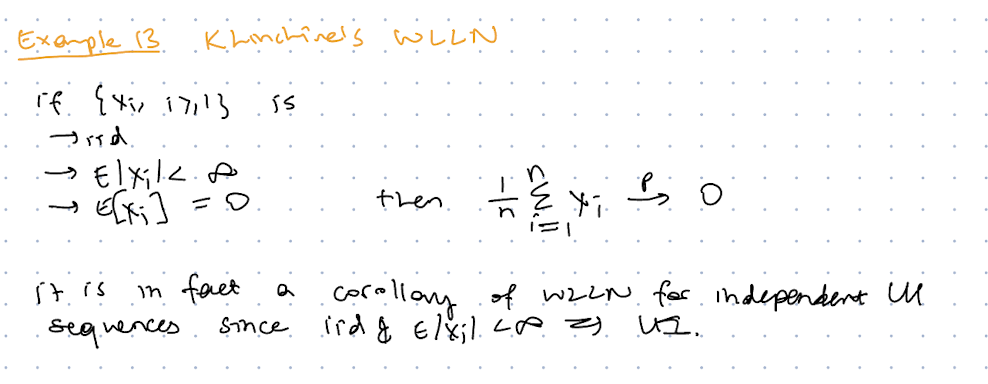 Example 13 Khinchine's WLLN
if {Xi, i≥1} is
→ iid
→ E|Xi| < ∞
→ E[Xi] = 0 then 1/n Σ_{i=1}^{n} Xi →^P 0
it is in fact a corollary of WLLN for independent UI
sequences since iid & E|Xi| < ∞ ⇒ UI.